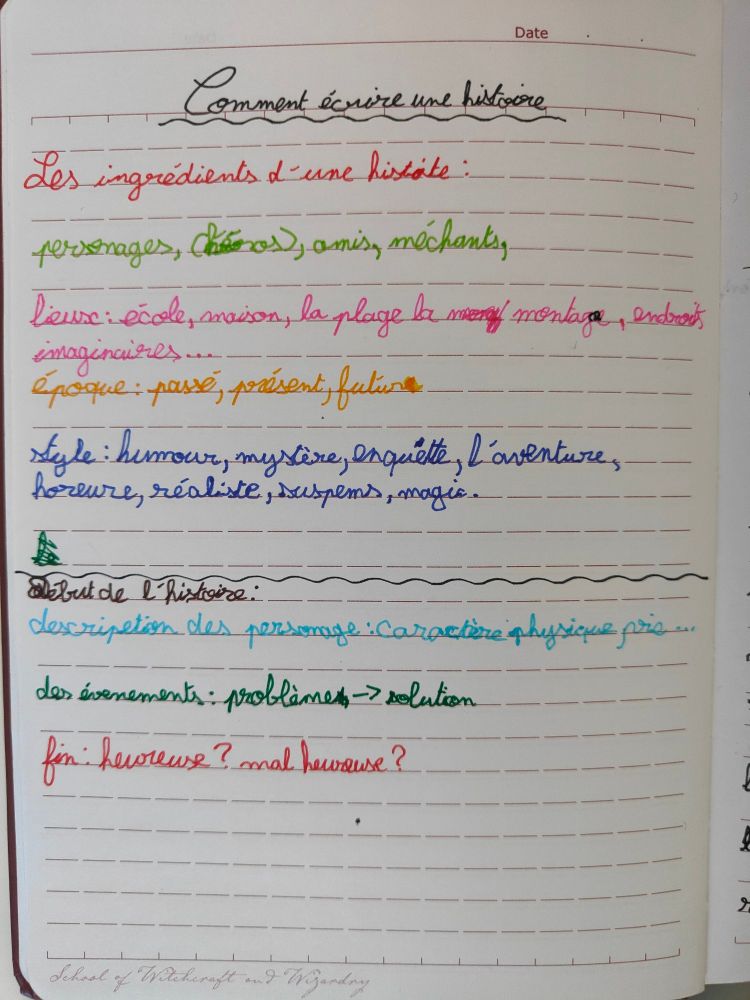 Date
Comment écrire une histoire
Les ingrédients d'une histoite :
personages, (héros), amis, méchants,
lieux : école, maison, la plage la montage, endroits
imaginaires...
époque : passé, présent, futur
style : humour, mystère, enquête, l'aventure,
horeure, réaliste, suspems, magie.
début de l'histoire :
descripetion des personage : caractère physique ...
des évenements : problèmes -> solution
fin : heureuse ? mal heureuse ?
School of Witchcraft and Wizardry